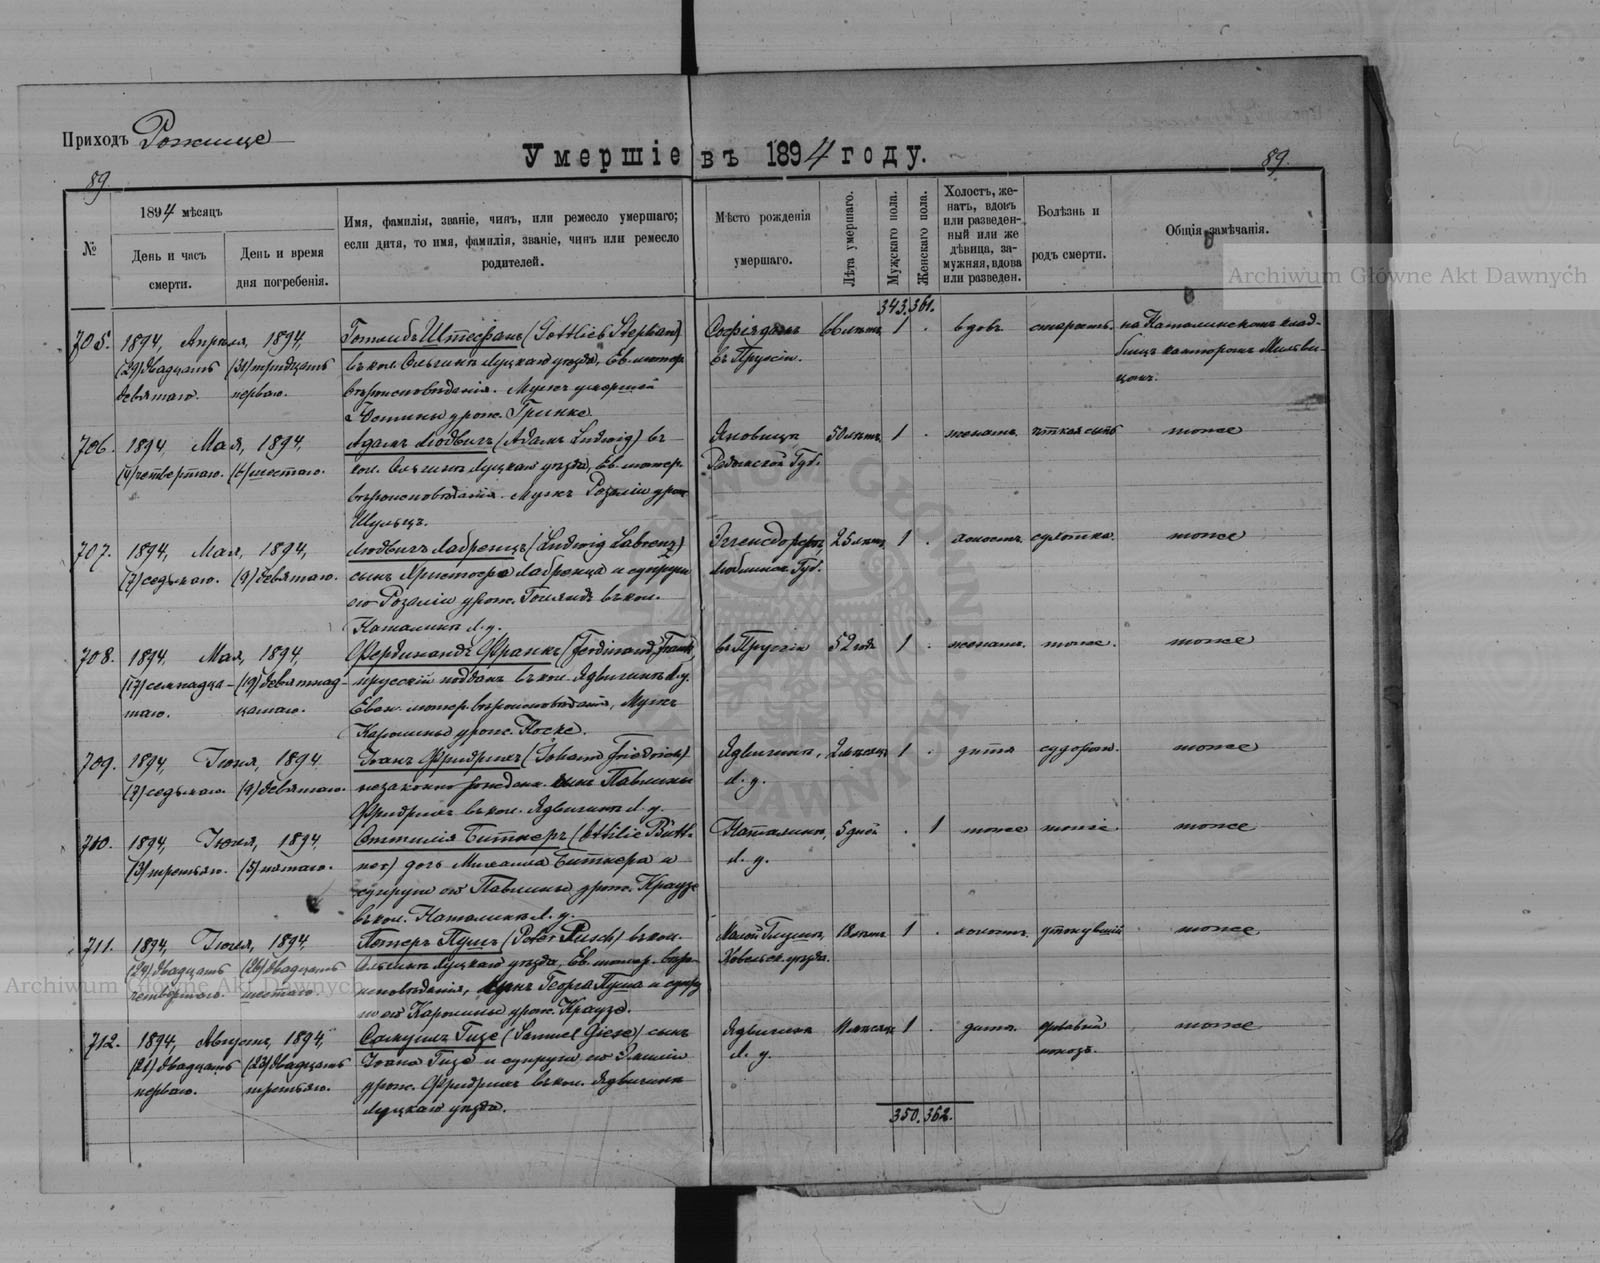 Приходъ Рожище
Умершіе въ 1894 году.
89
89.
№
1894 мѣсяцъ
День и часъ смерти.
День и время дня погребенія.
Имя, фамилія, званіе, чинъ, или ремесло умершаго;
если дитя, то имя, фамилія, званіе, чинъ или ремесло
родителей.
Мѣсто рожденія
умершаго.
Лѣта умершаго.
Мужскаго пола.
Женскаго пола.
Холостъ, же-
натъ, вдовъ
или разведен-
ный или же
дѣвица, за-
мужняя, вдова
или разведен.
Болѣзнь и
родъ смерти.
Общія замѣчанія.
Archiwum Główne Akt Dawnych
343. 361.
705. 1894, Апрѣля, 1894, Готлибъ Штефанъ (Gottlieb Stephan) 66 лѣтъ 1 . вдовъ старость. на Каталинскомъ клад-
(29) двадцать (31) тридцать въ кол. Ольгинъ Луцкаго уѣзда, Ев. лютер. въ Пруссіи.
девятаго. перваго. вѣроисповѣданія. Мужъ умершей
урож. Гринке.
706. 1894, Мая, 1894, Адамъ Людвигъ (Адамъ Ludwig) въ Яновица 50 лѣтъ 1 . женатъ. тоже
(4) четвертаго. (6) шестаго. кол. Ольгинъ Луцкаго уѣзда, Ев. лютер. Радомской Губ.
вѣроисповѣданія. Мужъ Розаліи урож.
Шульцъ.
707. 1894, Мая, 1894, Людвигъ Лабренцъ (Ludwig Labrenz) 25 лѣтъ 1 . холостъ. сухотка. тоже
(7) седьмаго. (9) девятаго. сынъ Христофа Лабренца и супруги Люблинск. Губ.
его Розаліи урож. въ кол.
Каталинъ Л. у.
708. 1894, Мая, 1894, Фердинандъ Франкъ (Ferdinand Frank) въ Пруссіи 52 года 1 . женатъ. тоже. тоже
(17) семнадца- (19) девятнад- прусскій поддан. въ кол. Ядвигинъ Л. у.
таго. цатаго. Еван. лютер. вѣроисповѣданія, Мужъ
Каролины урож. Коске.
709. 1894, Іюля, 1894 Іоанъ Фридрихъ (Johann Friedrich) Ядвигинъ, 1 . дитя тоже
(7) седьмаго. (9) девятаго. незаконно рожден. сынъ Павлины Л. у.
Фридрихъ въ кол. Ядвигинъ Л. у.
710. 1894, Іюля, 1894 Оттилія Битнеръ (Ottilie Bütt- Каталинъ, 5 дней . 1 тоже тоже тоже
(3) третьяго. (5) пятаго. ner) дочь Михаила Битнера и Л. у.
супруги его Павлины урож. Краузе
въ кол. Каталинъ Л. у.
711. 1894, Іюля, 1894 Петеръ Пушъ (Peter Pusch) въ кол. 18 лѣтъ 1 . холостъ. тоже
(24) двадцать (26) двадцать Ольгинъ Луцкаго уѣзда, Ев. лютер. вѣро- Ковельск. уѣзда.
четвертаго. шестаго. исповѣданія, сынъ Георга Пуша и супру-
ги его Каролины урож. Краузе.
Archiwum Główne Akt Dawnych
712. 1894, Августа, 1894, Самуилъ Гизе (Samuel Giese) сынъ Ядвигинъ 1 . дитя. тоже
(21) двадцать (23) двадцать Іоана Гизе и супруги его Эмиліи Л. у.
перваго. третьяго. урож. Фридрихъ въ кол. Ядвигинъ
Луцкаго уѣзда.
350. 362.